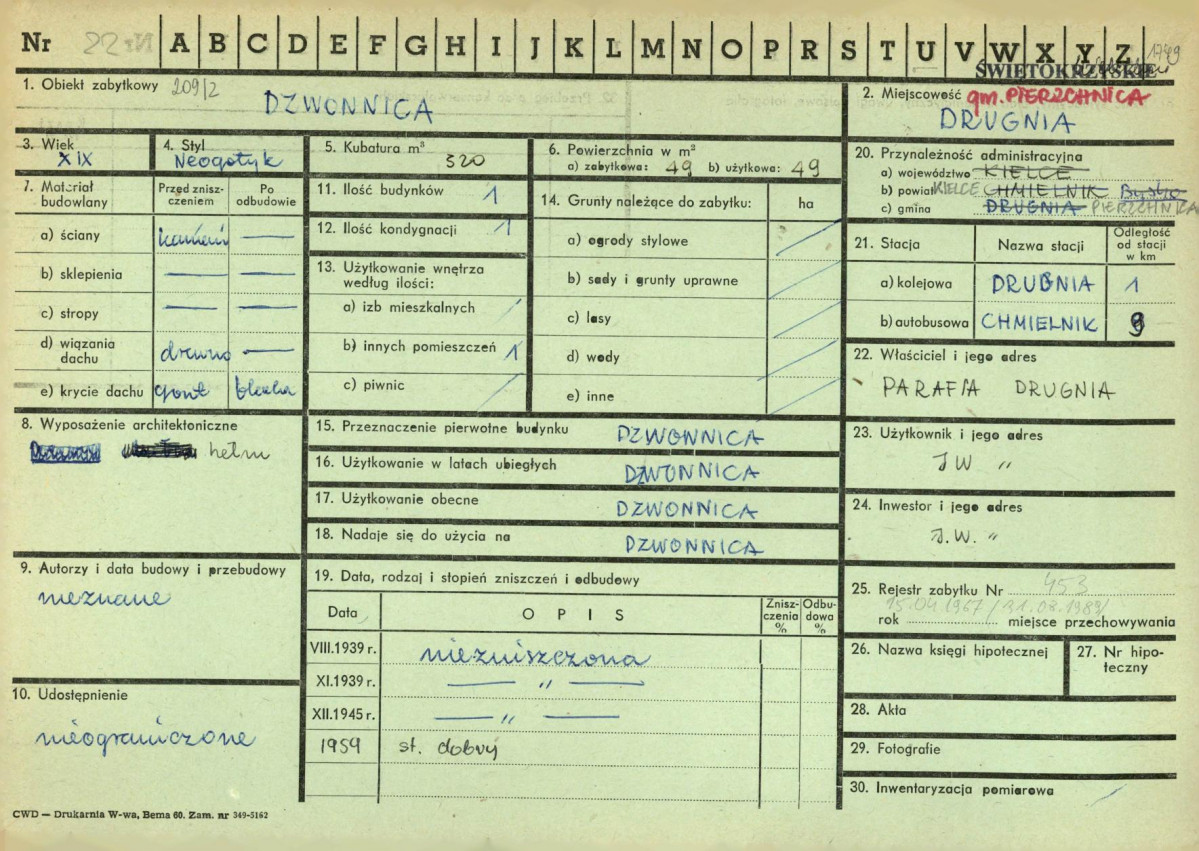 Nr 22 A B C D E F G H I J K L M N O P R S T U V W X Y Z 1749
ŚWIĘTOKRZYSKIE
1. Obiekt zabytkowy 209/2
DZWONNICA
2. Miejscowość gm. PIERZCHNICA
DRUGNIA
3. Wiek
XIX
4. Styl
Neogotyk
5. Kubatura m³
320
6. Powierzchnia w m²
a) zabytkowa: 49 b) użytkowa: 49
7. Materiał budowlany
Przed zniszczeniem
Po odbudowie
a) ściany kamień —
b) sklepienia — —
c) stropy — —
d) wiązania dachu drewno —
e) krycie dachu gont blacha
8. Wyposażenie architektoniczne
hełm
9. Autorzy i data budowy i przebudowy
nieznane
10. Udostępnienie
nieograniczone
11. Ilość budynków 1
12. Ilość kondygnacji 1
13. Użytkowanie wnętrza
według ilości:
a) izb mieszkalnych /
b) innych pomieszczeń 1
c) piwnic /
14. Grunty należące do zabytku: ha
a) ogrody stylowe
b) sady i grunty uprawne
c) lasy
d) wody
e) inne
15. Przeznaczenie pierwotne budynku DZWONNICA
16. Użytkowanie w latach ubiegłych DZWONNICA
17. Użytkowanie obecne DZWONNICA
18. Nadaje się do użycia na DZWONNICA
19. Data, rodzaj i stopień zniszczeń i odbudowy
Data OPIS Zniszczenia % Odbudowa %
VIII.1939 r. niezniszczona
XI.1939 r. — „ —
XII.1945 r. — „ —
1959 st. dobry
20. Przynależność administracyjna
a) województwo KIELCE
b) powiat KIELCE CHMIELNIK Busko
c) gmina DRUGNIA PIERZCHNICA
21. Stacja Nazwa stacji Odległość od stacji w km
a) kolejowa DRUGNIA 1
b) autobusowa CHMIELNIK 9
22. Właściciel i jego adres
PARAFIA DRUGNIA
23. Użytkownik i jego adres
J W „
24. Inwestor i jego adres
J.W. „
25. Rejestr zabytku Nr 453
15.04.1967 / 31.08.1989/
rok miejsce przechowywania
26. Nazwa księgi hipotecznej
27. Nr hipoteczny
28. Akta
29. Fotografie
30. Inwentaryzacja pomiarowa
CWD — Drukarnia W-wa, Bema 60. Zam. nr 349-5162